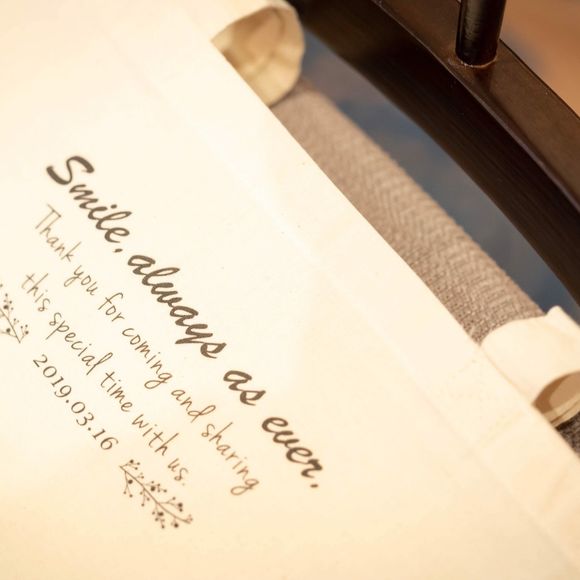 Smile, always as ever.
Thank you for coming and sharing
this special time with us.
2019.03.16